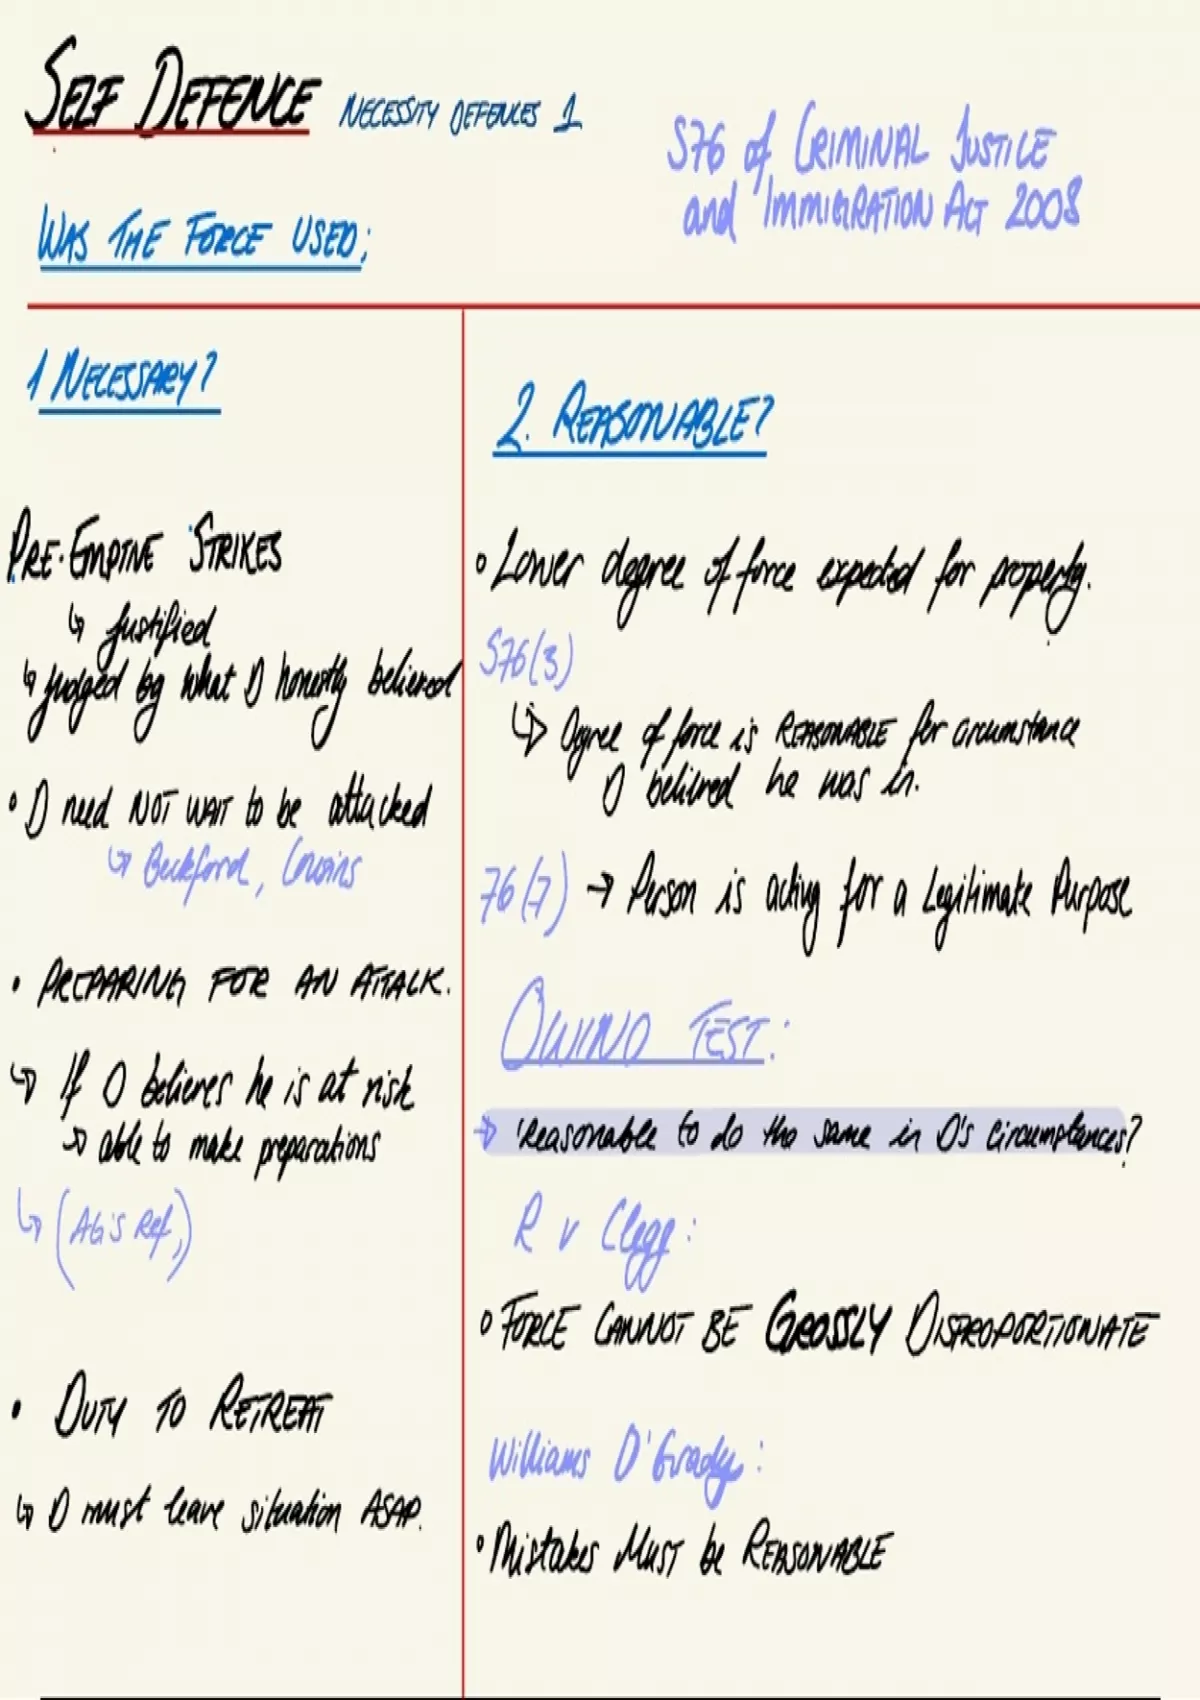 SELF DEFENCE NECESSITY DEFENCES 1
S76 of CRIMINAL JUSTICE
and IMMIGRATION ACT 2008
WAS THE FORCE USED;
1 NECESSARY?
PRE-EMPTIVE STRIKES
↳ justified
↳ judged by what D honestly believed
• D need NOT WAIT to be attacked
↳ Beckford, Cousins
• PREPARING FOR AN ATTACK.
↳ If D believes he is at risk
→ able to make preparations
↳ (AG's Ref,)
• DUTY TO RETREAT
↳ D must leave situation ASAP.
2. REASONABLE?
• Lower degree of force expected for property.
S76(3)
↳ Degree of force is REASONABLE for circumstance
D believed he was in.
76(7) → Person is acting for a Legitimate Purpose
OWINO TEST:
→ 'Reasonable to do the same in D's circumstances?
R v Clegg:
• FORCE CANNOT BE GROSSLY DISPROPORTIONATE
Williams O'Grady:
• Mistakes MUST be REASONABLE